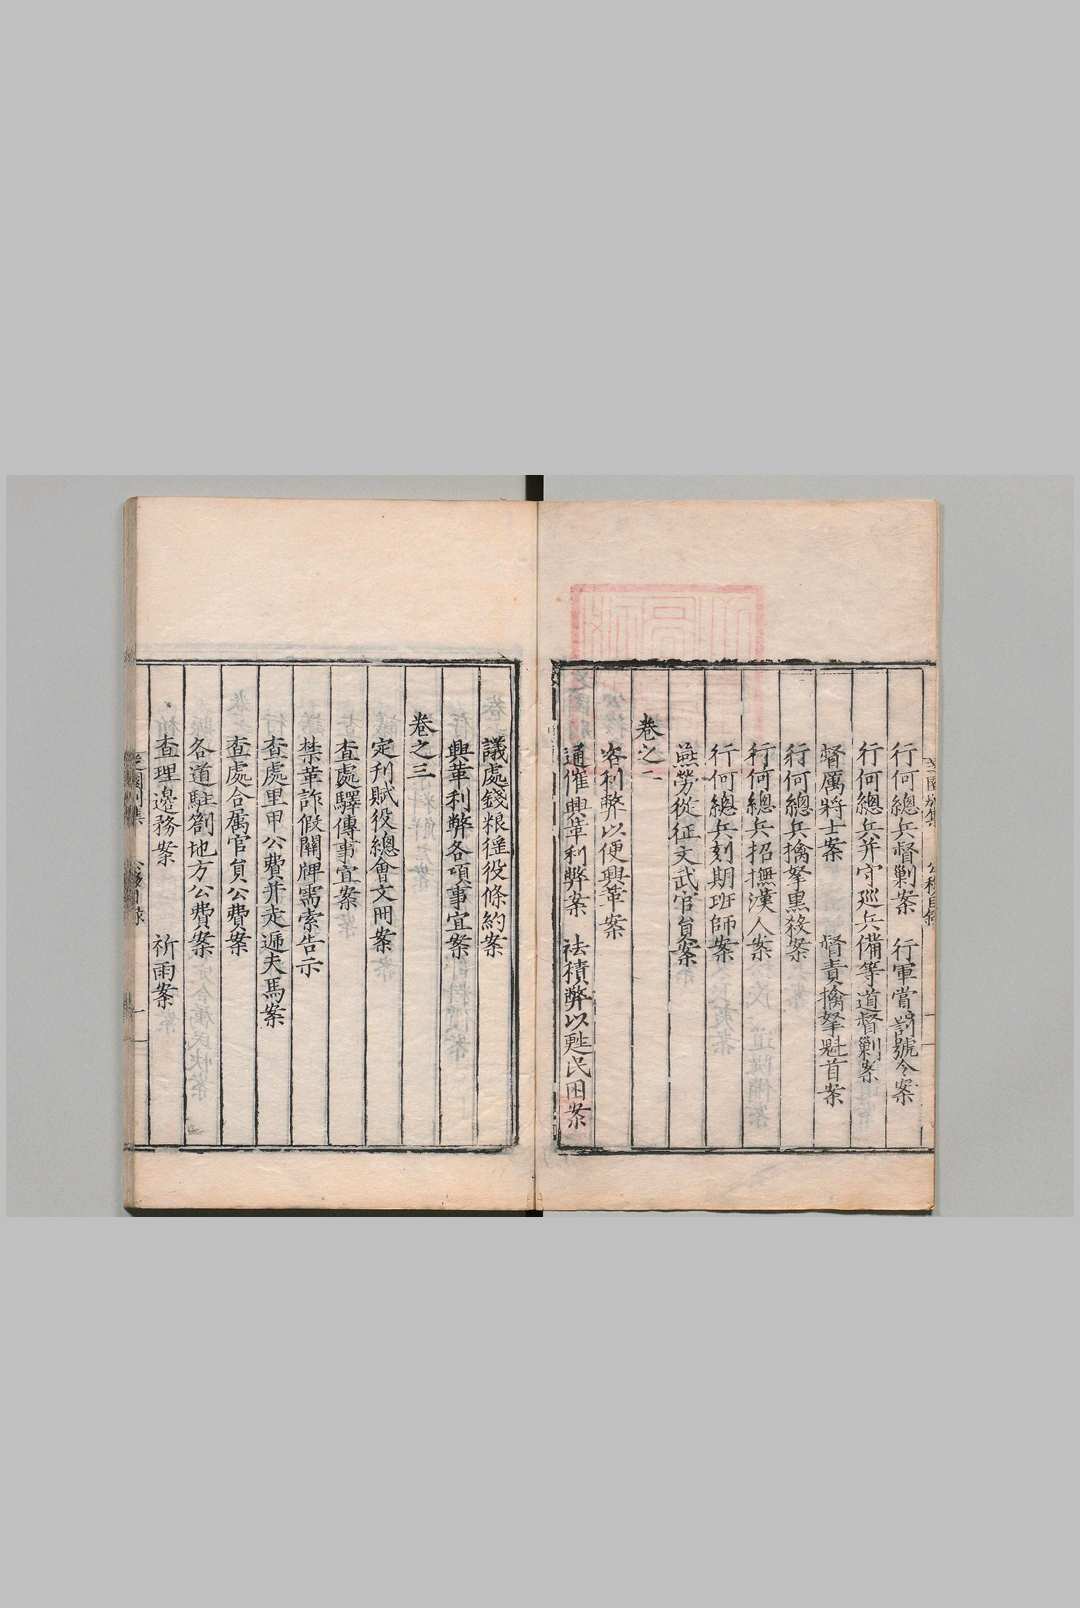 行何總兵督剿案　行軍賞罰號令案
行何總兵并守巡兵備等道督剿案
督厲將士案　督責擒拏魁首案
行何總兵擒拏黒殺案
行何總兵招撫漢人案
行何總兵刻期班師案
燕勞從征文武官員案
卷之二
咨利弊以便興革案
通催興革利弊案　袪積弊以甦民困案
議處錢粮徭役條約案
興革利弊各項事宜案
卷之三
定刋賦役總會文冊案
査處驛傳事宜案
禁革詐假關牌需索告示
査處里甲公費并走逓夫馬案
査處合属官員公費案
各道駐劄地方公費案
査理邊務案　祈雨案